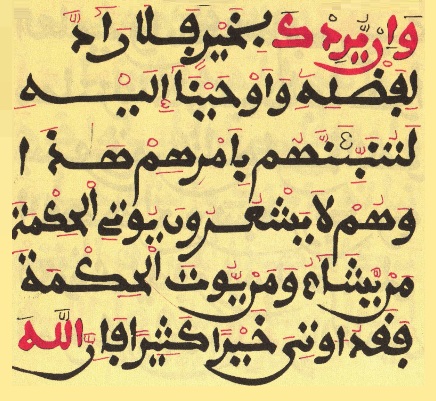 وَإِنْ يُّرِدْكَ بِخَيْرٍ فَلَا رَادَّ
لِفَضْلِهِ وَأَوْحَيْنَا إِلَيْهِ
لَتُنَبِّئَنَّهُم بِأَمْرِهِمْ هَـٰذَا
وَهُمْ لَا يَشْعُرُونَ يُوتِي الْحِكْمَةَ
مَنْ يَّشَاءُ وَمَنْ يُّوتَ الْحِكْمَةَ
فَقَدْ أُوتِيَ خَيْرًا كَثِيرًا فَإِنَّ اللَّهَ